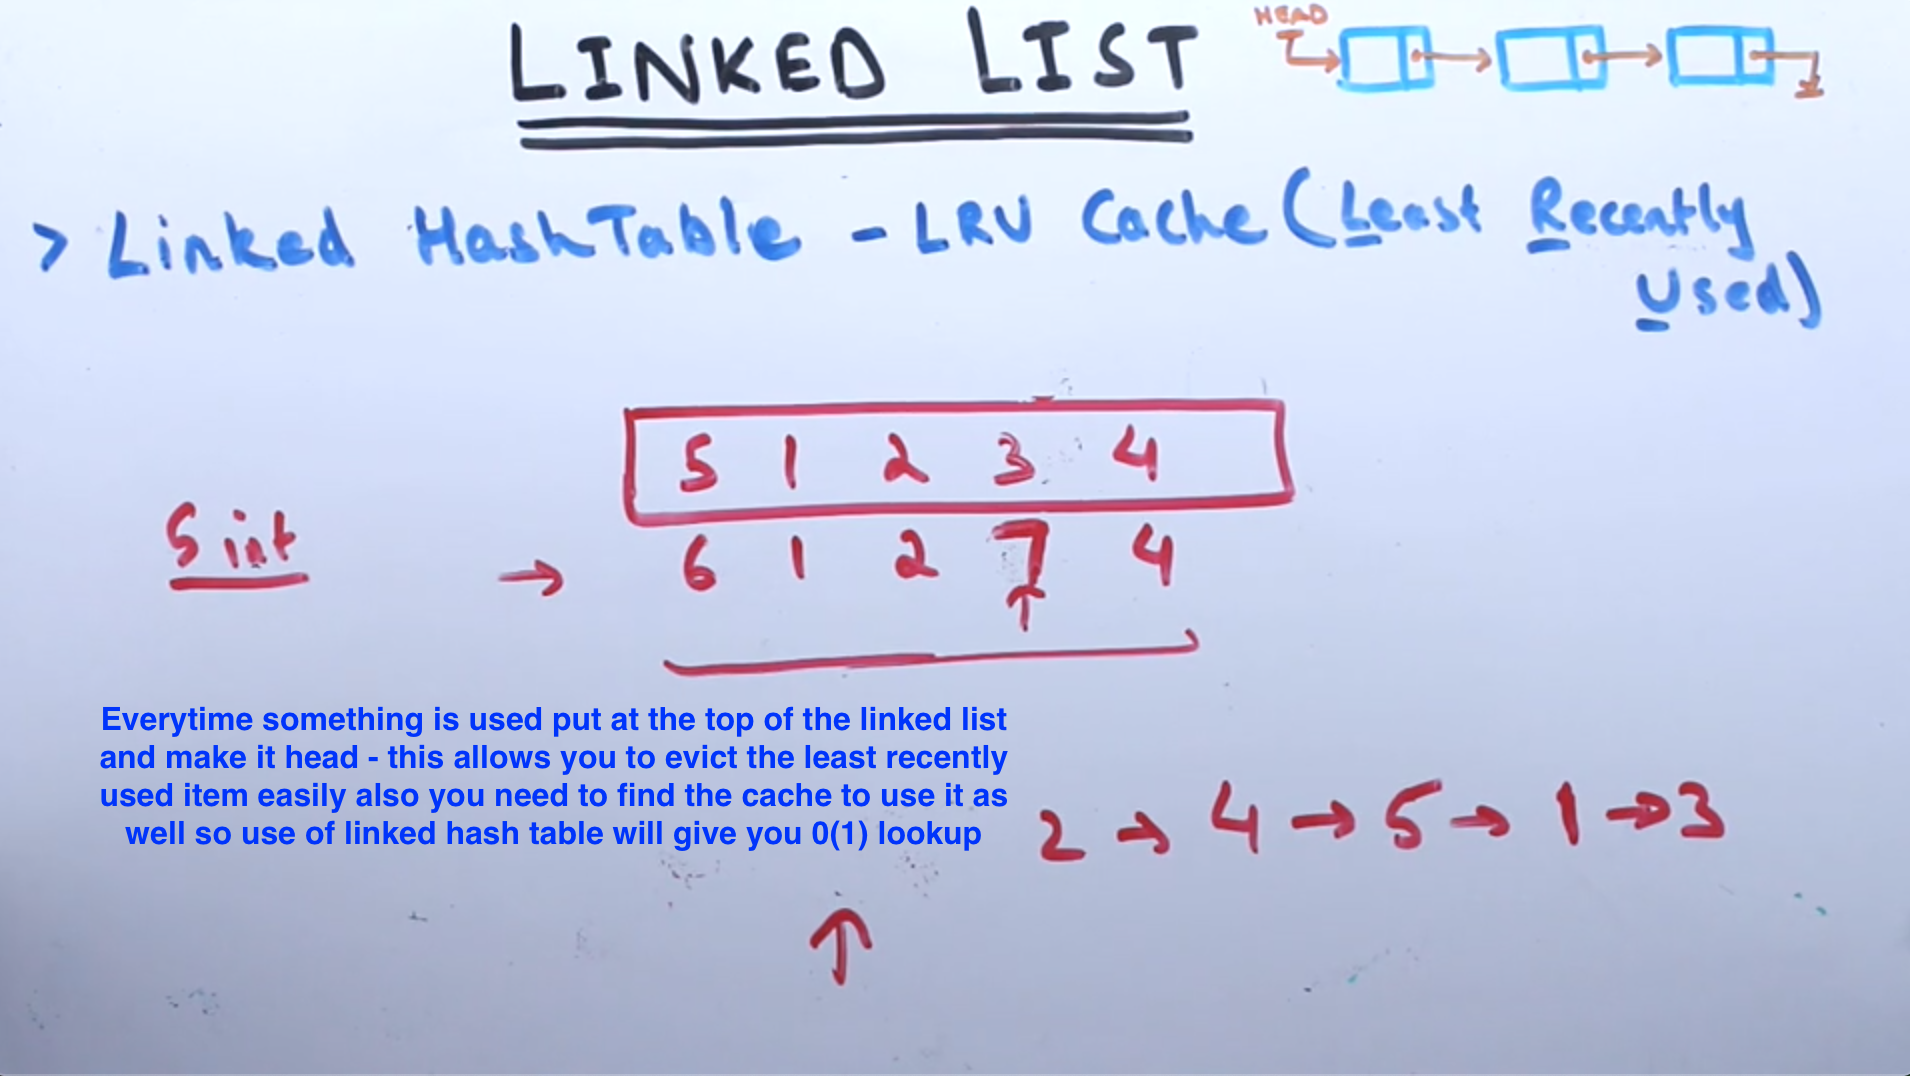 LINKED LIST
HEAD
> Linked HashTable - LRU Cache (Least Recently
Used)
5 1 2 3 4
5 int → 6 1 2 7 4
↑
Everytime something is used put at the top of the linked list
and make it head - this allows you to evict the least recently
used item easily also you need to find the cache to use it as
well so use of linked hash table will give you 0(1) lookup
2 → 4 → 5 → 1 → 3
↑